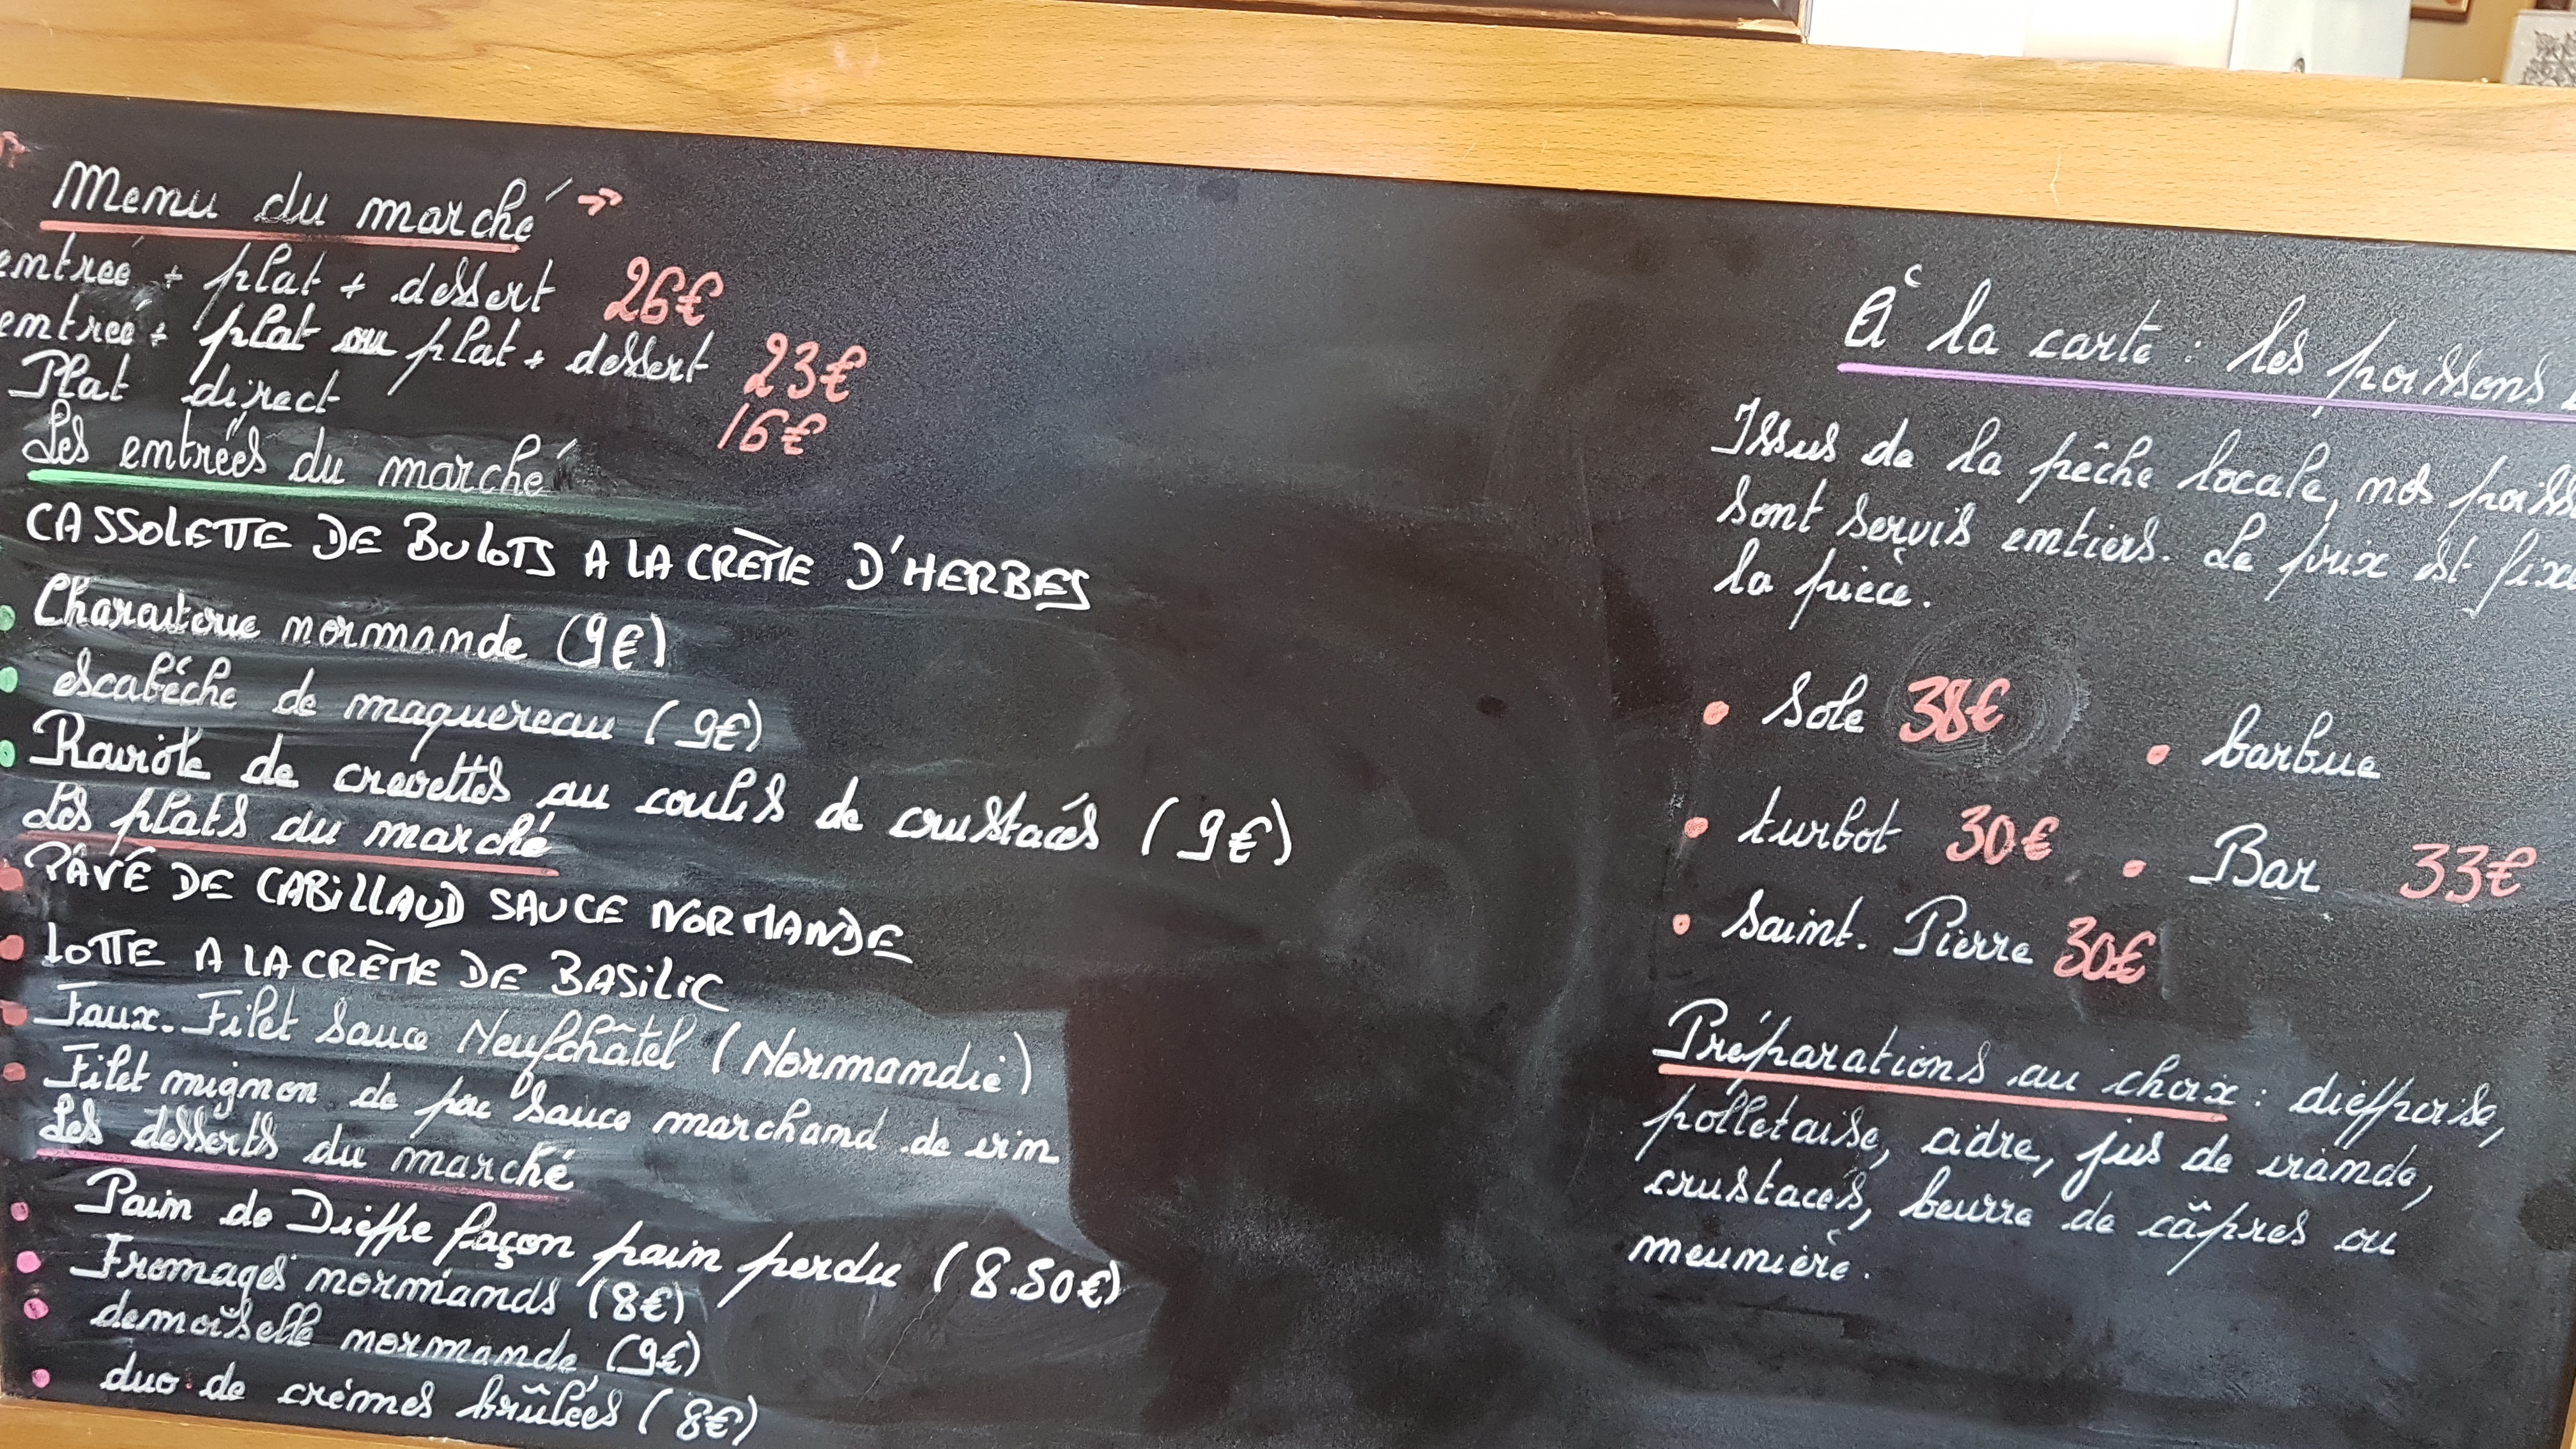 Menu du marché
entrée + plat + dessert 26€
entrée + plat ou plat + dessert 23€
Plat direct 16€
Les entrées du marché
CASSOLETTE DE BULOTS A LA CRÈME D'HERBES
Charcuterie normande (9€)
escabèche de maquereau (9€)
Raviole de crevettes au coulis de crustacés (9€)
Les plats du marché
PÂVÉ DE CABILLAUD SAUCE NORMANDE
LOTTE A LA CRÈME DE BASILIC
Faux-Filet Sauce Neufchâtel (Normandie)
Filet mignon de porc Sauce marchand de vin
Les desserts du marché
Pain de Dieppe façon pain perdu (8.50€)
Fromages normands (8€)
demoiselle normande (9€)
duo de crèmes brûlées (8€)
À la carte : les poissons
Issus de la pêche locale, nos poiss
sont servis entiers. Le prix est fixé
la pièce.
Sole 38€
barbue
turbot 30€
Bar 33€
Saint-Pierre 30€
Préparations au choix : dieppoise,
polletaise, cidre, jus de viande,
crustacés, beurre de câpres ou
meunière.